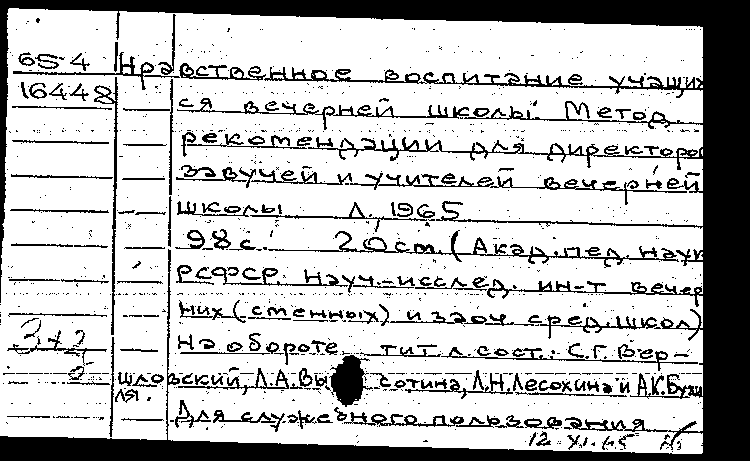 65-4 Нравственное воспитание учащих
16448 ся вечерней школы. Метод.
рекомендации для директоро
завучей и учителей вечерней
школы Л. 1965
98 с. 20 ст. (Акад. пед. наук
РСФСР. Науч.-исслед. ин-т вечер
них (сменных) и заоч. сред. школ)
На обороте тит. л. сост.: С.Г. Вер-
шловский, Л.А. Высотина, Л.Н. Лесохина и А.К. Бухи
Для служебного пользования
12.XI.65